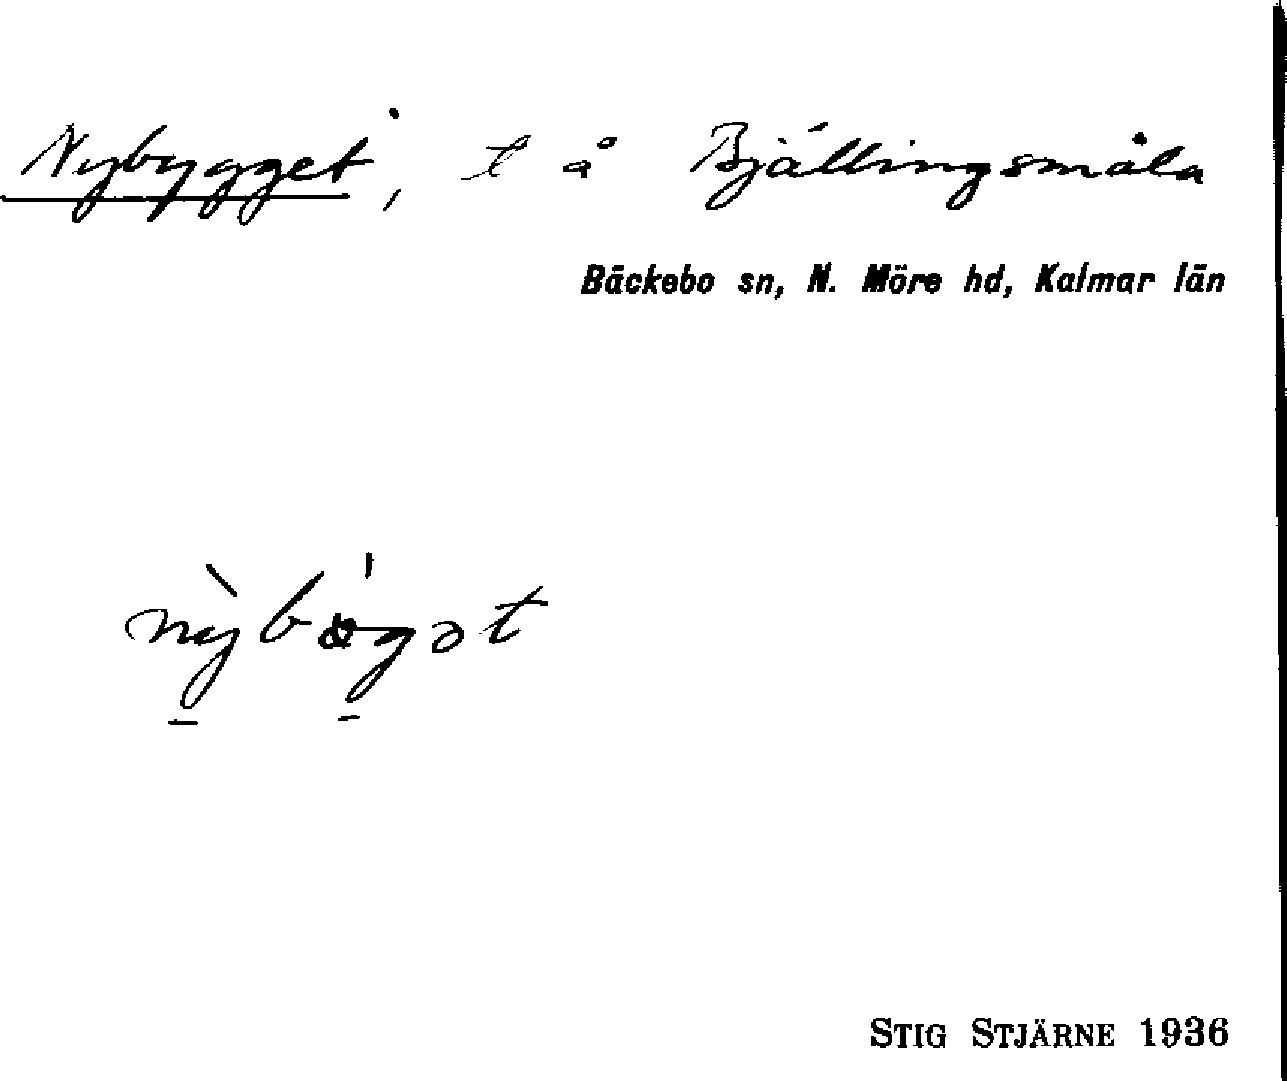 Nybygget, t å Bjällingsmåla
Bäckebo sn, N. Möre hd, Kalmar län
STIG STJÄRNE 1936